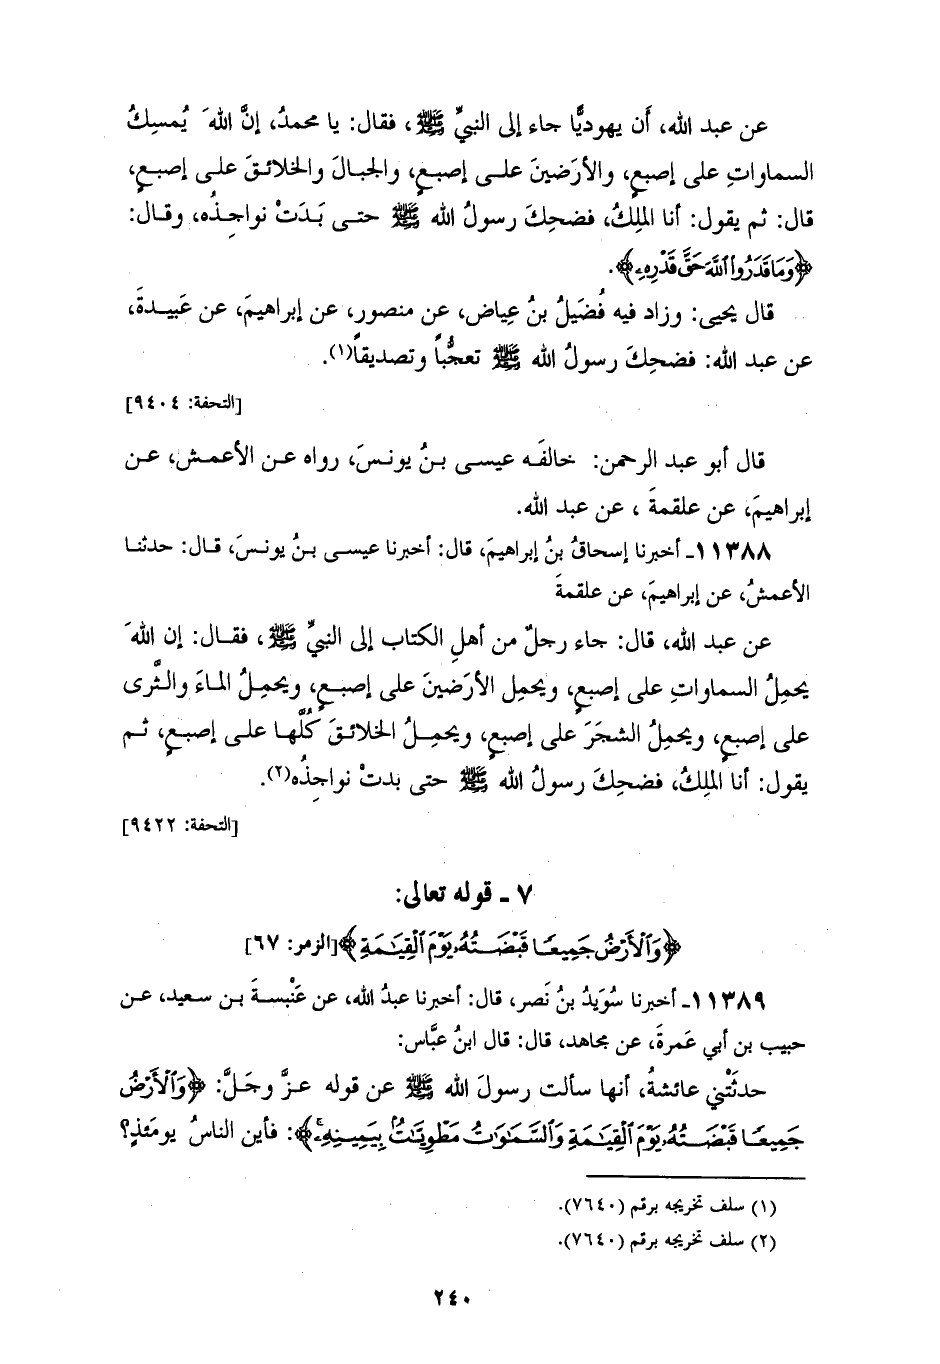 عن عبد الله، أن يهوديًّا جاء إلى النبيِّ ﷺ، فقال: يا محمدُ، إنَّ اللهَ يُمسِكُ
السماواتِ على إصبعٍ، والأرَضينَ على إصبعٍ، والجبالَ والخلائقَ على إصبعٍ،
قال: ثم يقول: أنا الملِكُ، فضحِكَ رسولُ الله ﷺ حتى بَدَتْ نواجِذُه، وقال:
﴿وَمَا قَدَرُوا۟ ٱللَّهَ حَقَّ قَدْرِهِۦ﴾.
قال يحيى: وزاد فيه فُضَيلُ بنُ عِياض، عن منصور، عن إبراهيمَ، عن عَبيدةَ،
عن عبد الله: فضحِكَ رسولُ الله ﷺ تعجُّباً وتصديقاً(١).
[التحفة: ٩٤٠٤]
قال أبو عبد الرحمن: خالفَه عيسى بنُ يونسَ، رواه عن الأعمش، عن
إبراهيمَ، عن علقمةَ ، عن عبد الله.
١١٣٨٨ـ أخبرنا إسحاقُ بنُ إبراهيمَ، قال: أخبرنا عيسى بنُ يونسَ، قال: حدثنا
الأعمشُ، عن إبراهيمَ، عن علقمةَ
عن عبد الله، قال: جاء رجلٌ من أهلِ الكتاب إلى النبيِّ ﷺ، فقال: إن اللهَ
يحمِلُ السماواتِ على إصبعٍ، ويحمِل الأرَضينَ على إصبعٍ، ويحمِلُ الماءَ والثَّرى
على إصبعٍ، ويحمِلُ الشجَرَ على إصبعٍ، ويحمِلُ الخلائقَ كُلَّها على إصبعٍ، ثم
يقول: أنا الملِكُ، فضحِكَ رسولُ الله ﷺ حتى بدتْ نواجِذُه(٢).
[التحفة: ٩٤٢٢]
٧ ـ قوله تعالى:
﴿وَٱلْأَرْضُ جَمِيعًا قَبْضَتُهُۥ يَوْمَ ٱلْقِيَـٰمَةِ﴾[الزمر: ٦٧]
١١٣٨٩ـ أخبرنا سُوَيدُ بنُ نَصر، قال: أخبرنا عبدُ الله، عن عَنْبسةَ بن سعيد، عن
حبيب بن أبي عَمرةَ، عن مجاهد، قال: قال ابنُ عبَّاس:
حدثَتْني عائشةُ، أنها سألت رسولَ الله ﷺ عن قوله عزَّ وجَلَّ: ﴿وَٱلْأَرْضُ
جَمِيعًا قَبْضَتُهُۥ يَوْمَ ٱلْقِيَـٰمَةِ وَٱلسَّمَـٰوَٰتُ مَطْوِيَّـٰتٌۢ بِيَمِينِهِۦ﴾: فأين الناسُ يومئذٍ؟
(١) سلف تخريجه برقم (٧٦٤٠).
(٢) سلف تخريجه برقم (٧٦٤٠).
٢٤٠